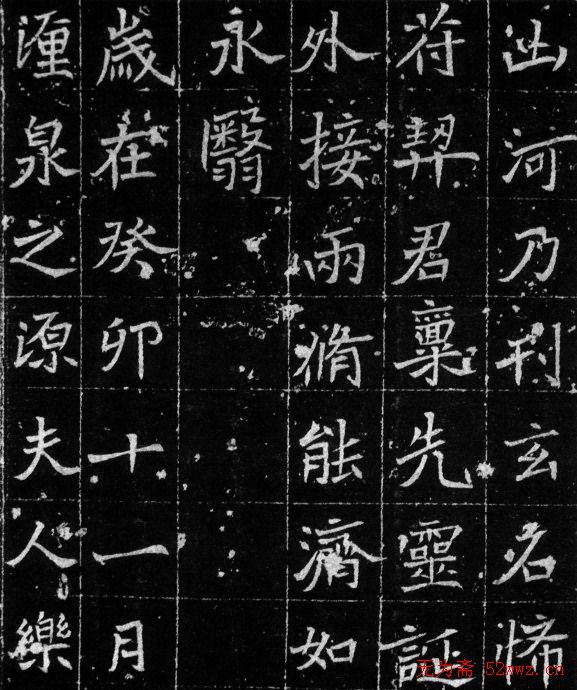 河乃刊玄名悕
符契君稟先靈誕
外接兩脩能濟如
永翳
歲在癸卯十一月
泉之源夫人
无为斋 52wwz.cn